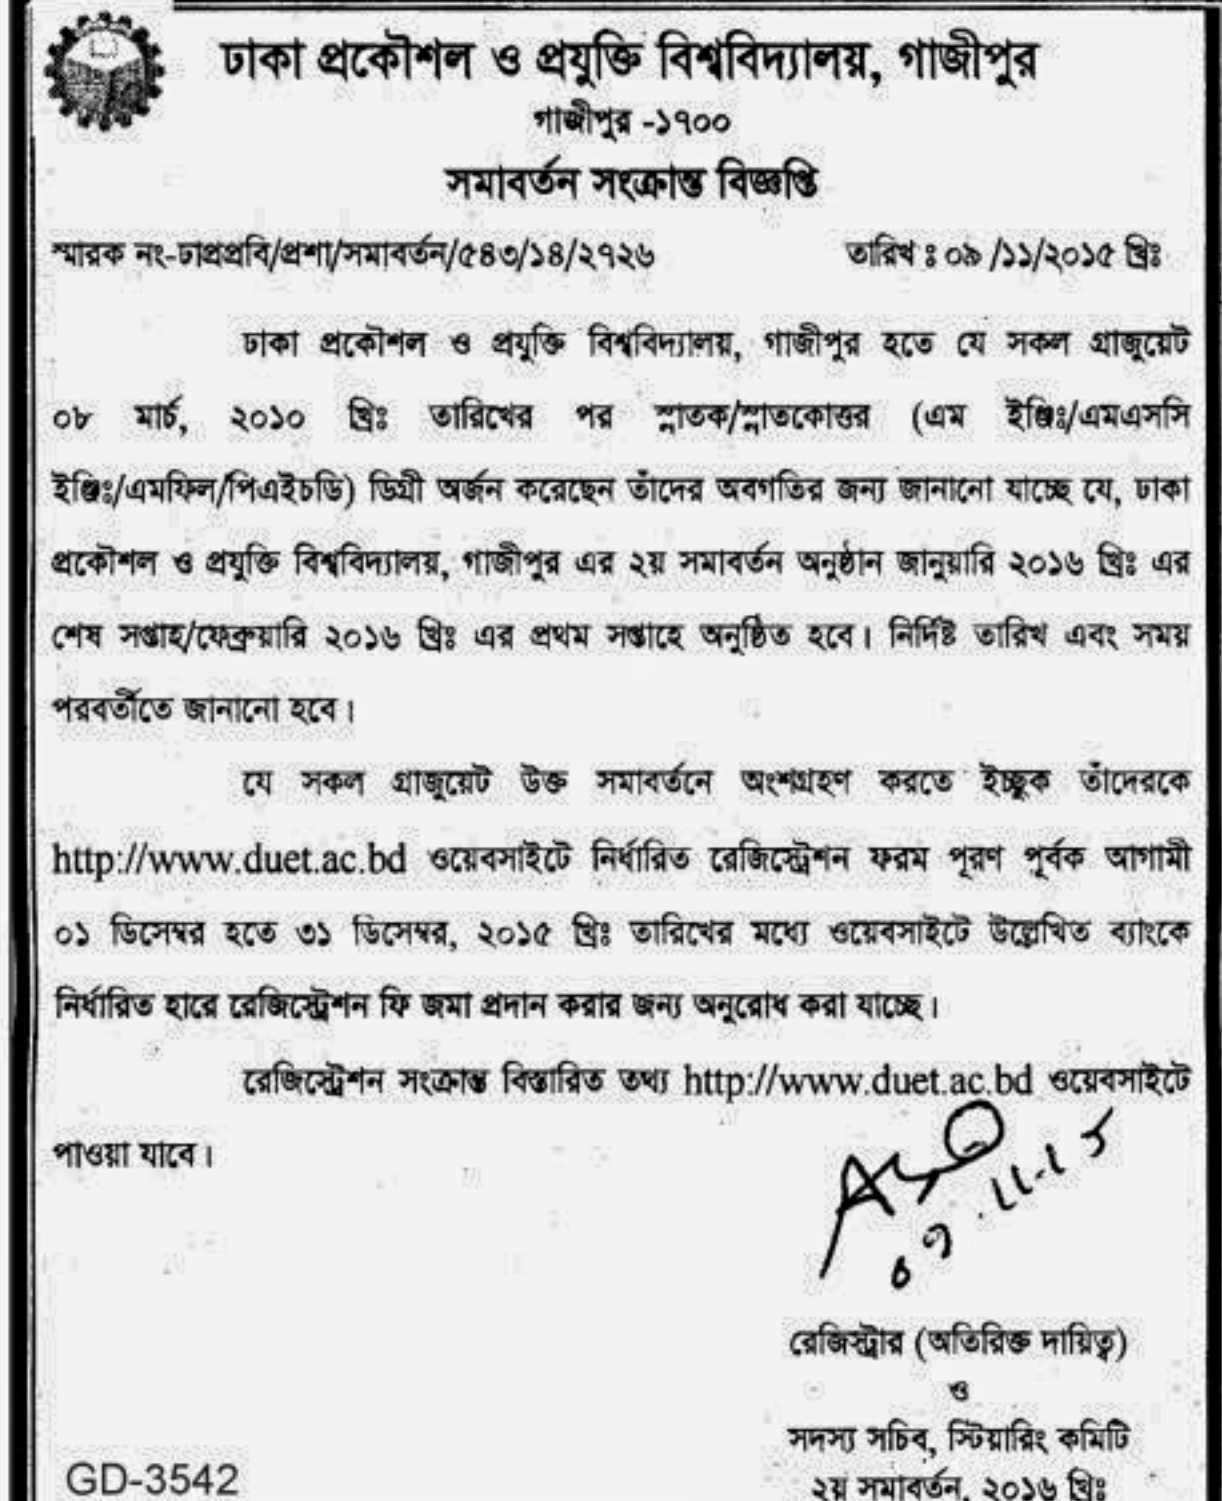 ঢাকা প্রকৌশল ও প্রযুক্তি বিশ্ববিদ্যালয়, গাজীপুর
গাজীপুর -১৭০০
সমাবর্তন সংক্রান্ত বিজ্ঞপ্তি
স্মারক নং-ঢাপ্রপ্রবি/প্রশা/সমাবর্তন/৫৪৩/১৪/২৭২৬ তারিখ ঃ ০৯ /১১/২০১৫ খ্রিঃ
ঢাকা প্রকৌশল ও প্রযুক্তি বিশ্ববিদ্যালয়, গাজীপুর হতে যে সকল গ্রাজুয়েট
০৮ মার্চ, ২০১০ খ্রিঃ তারিখের পর স্নাতক/স্নাতকোত্তর (এম ইঞ্জিঃ/এমএসসি
ইঞ্জিঃ/এমফিল/পিএইচডি) ডিগ্রী অর্জন করেছেন তাঁদের অবগতির জন্য জানানো যাচ্ছে যে, ঢাকা
প্রকৌশল ও প্রযুক্তি বিশ্ববিদ্যালয়, গাজীপুর এর ২য় সমাবর্তন অনুষ্ঠান জানুয়ারি ২০১৬ খ্রিঃ এর
শেষ সপ্তাহ/ফেব্রুয়ারি ২০১৬ খ্রিঃ এর প্রথম সপ্তাহে অনুষ্ঠিত হবে। নির্দিষ্ট তারিখ এবং সময়
পরবর্তীতে জানানো হবে।
যে সকল গ্রাজুয়েট উক্ত সমাবর্তনে অংশগ্রহণ করতে ইচ্ছুক তাঁদেরকে
http://www.duet.ac.bd ওয়েবসাইটে নির্ধারিত রেজিস্ট্রেশন ফরম পূরণ পূর্বক আগামী
০১ ডিসেম্বর হতে ৩১ ডিসেম্বর, ২০১৫ খ্রিঃ তারিখের মধ্যে ওয়েবসাইটে উল্লেখিত ব্যাংকে
নির্ধারিত হারে রেজিস্ট্রেশন ফি জমা প্রদান করার জন্য অনুরোধ করা যাচ্ছে।
রেজিস্ট্রেশন সংক্রান্ত বিস্তারিত তথ্য http://www.duet.ac.bd ওয়েবসাইটে
পাওয়া যাবে।
রেজিস্ট্রার (অতিরিক্ত দায়িত্ব)
ও
সদস্য সচিব, স্টিয়ারিং কমিটি
২য় সমাবর্তন, ২০১৬ খ্রিঃ
GD-3542